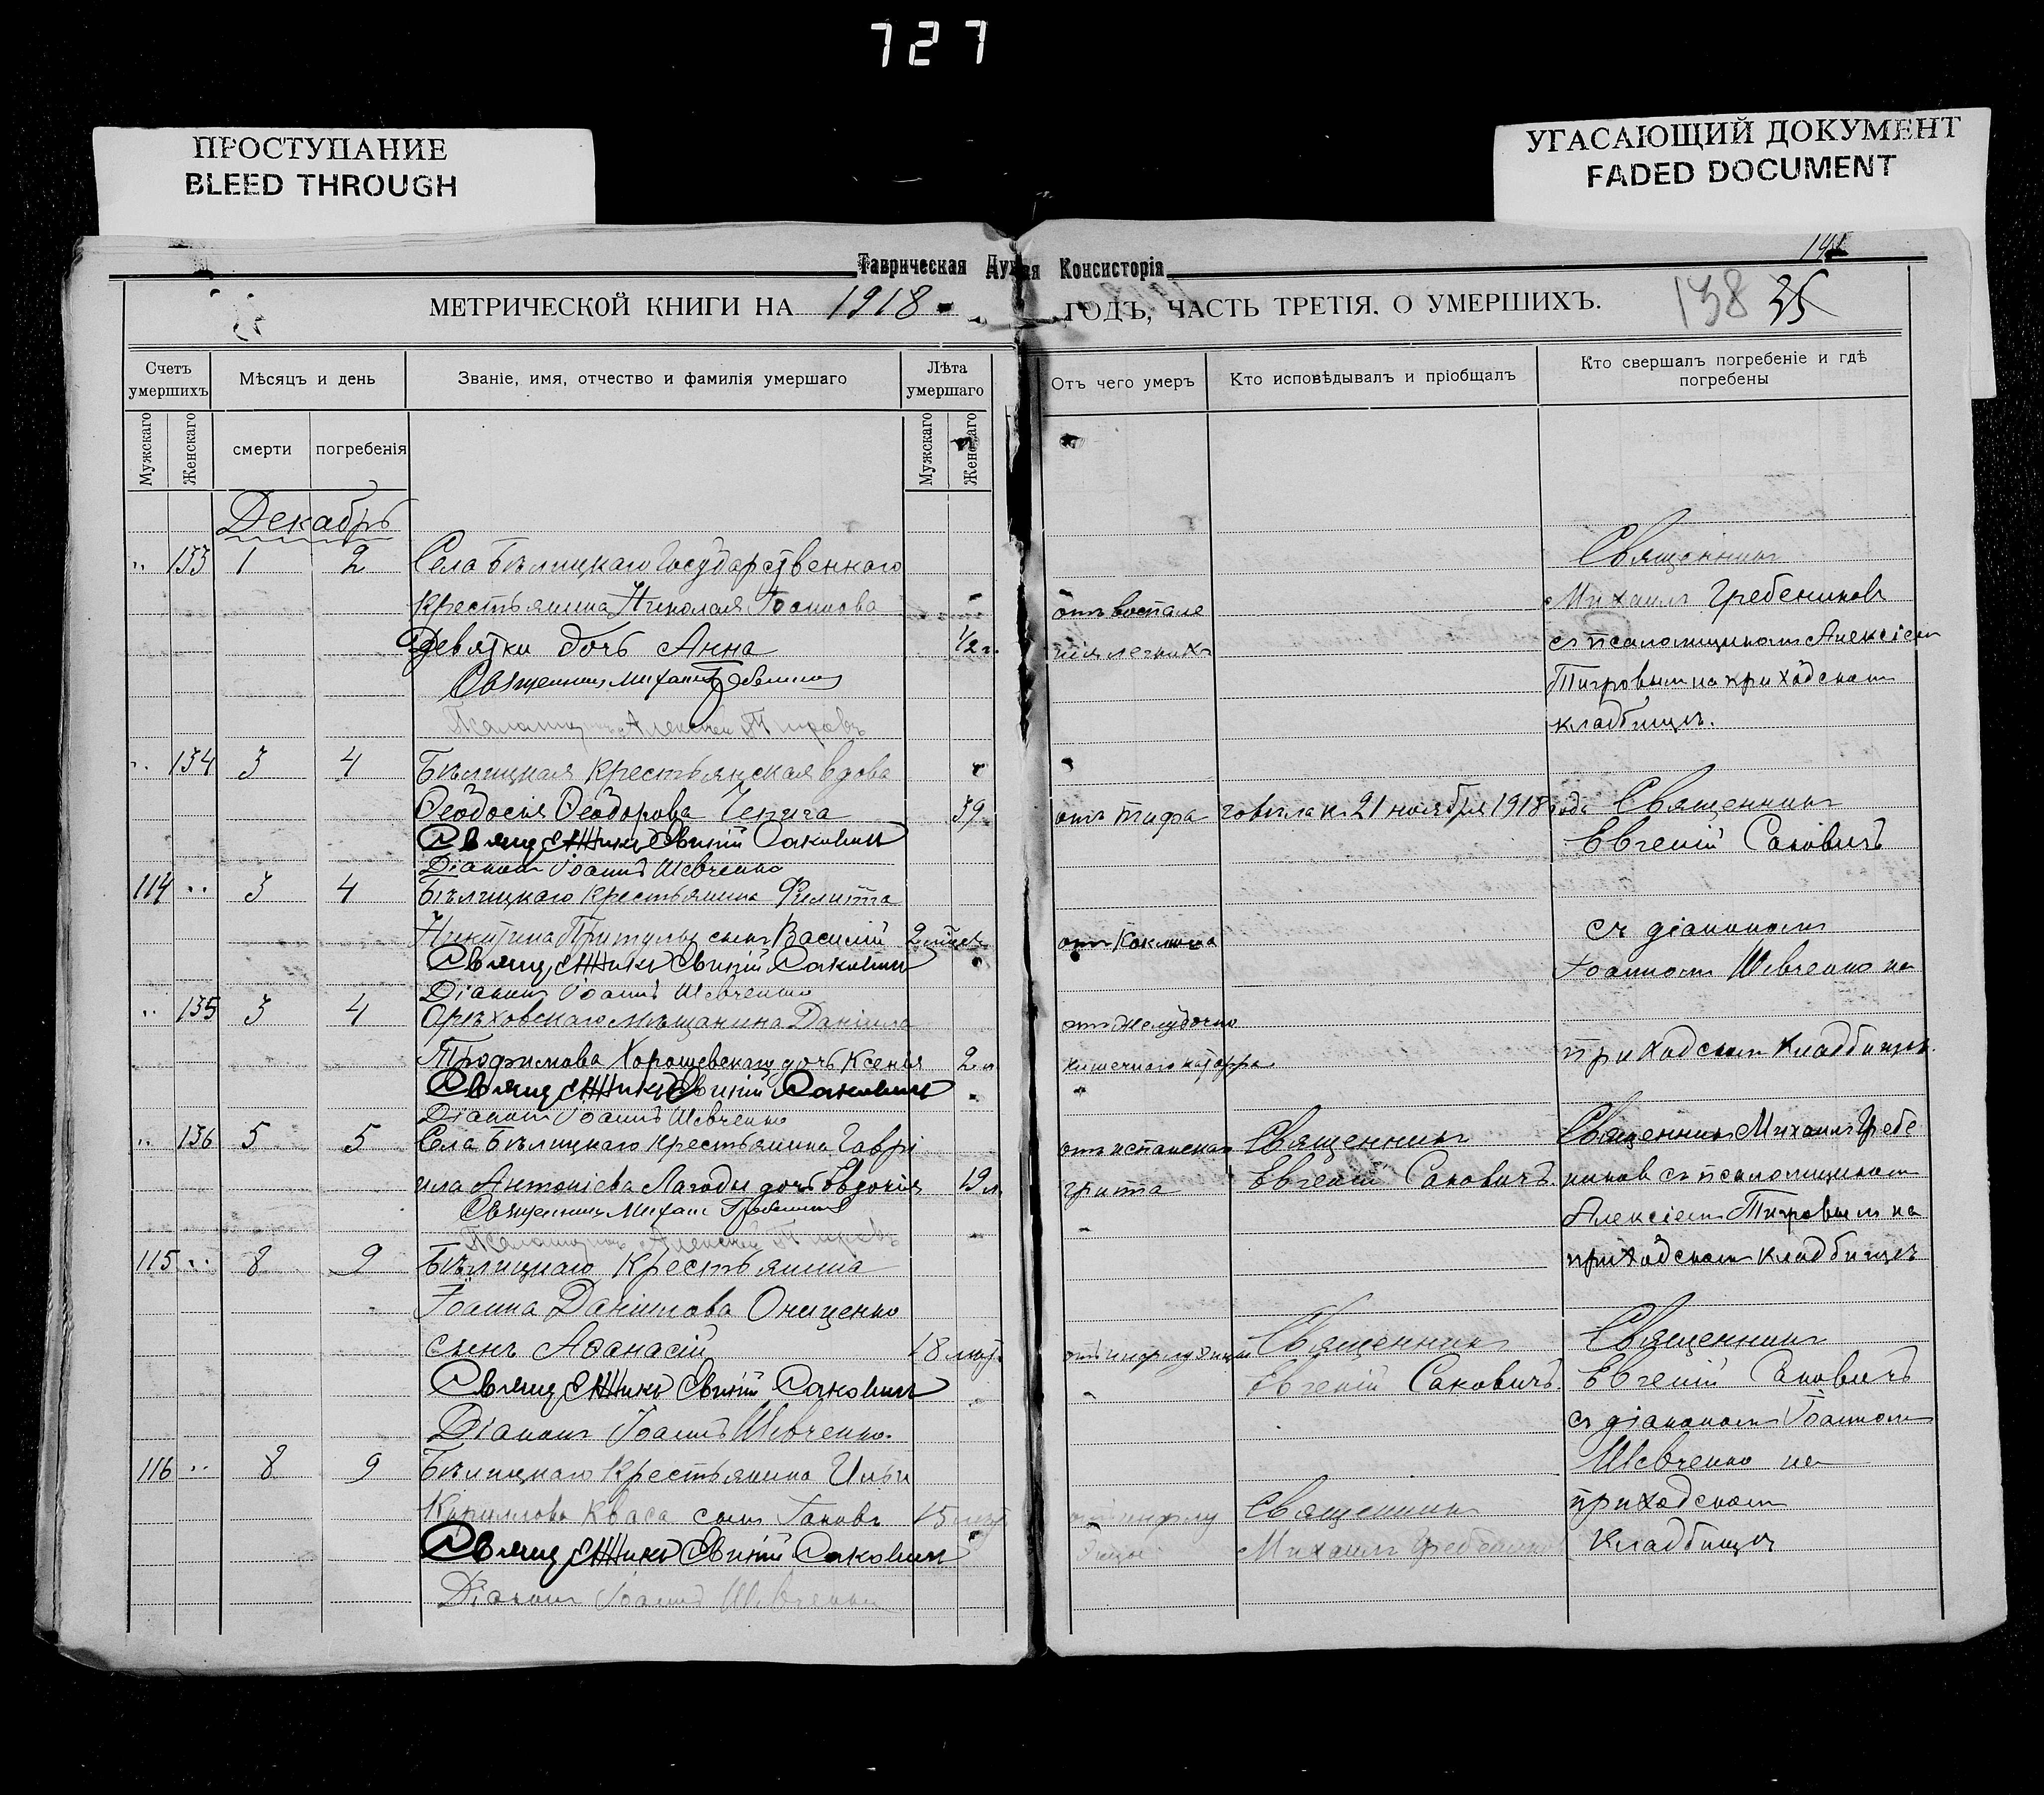 727
ПРОСТУПАНИЕ
BLEED THROUGH
УГАСАЮЩИЙ ДОКУМЕНТ
FADED DOCUMENT
Таврическая Дух
ая Консисторія
МЕТРИЧЕСКОЙ КНИГИ НА 1918
ГОДЪ, ЧАСТЬ ТРЕТІЯ. О УМЕРШИХЪ.
138 35
Счетъ умершихъ
Мѣсяцъ и день
Званіе, имя, отчество и фамилія умершаго
Лѣта умершаго
Отъ чего умеръ
Кто исповѣдывалъ и пріобщалъ
Кто свершалъ погребеніе и гдѣ погребены
Мужскаго
Женскаго
смерти
погребенія
Мужскаго
Женскаго
Декабрь
" 133 1 2 Села Бѣлицкаго Государственнаго
Священникъ
крестьянина Николая Іоаннова
отъ воспале
Михаилъ Гребениковъ
Девятки дочь Анна 1/2 г.
нія легкихъ
съ псаломщикомъ Алексіем
Священникъ Михаилъ Гребениковъ
Тигровымъ на приходскомъ
Псаломщикъ Алексей Тигровъ
кладбищѣ.
" 134 3 4 Бѣлицкая крестьянская вдова
Ѳеодосія Ѳеодорова Чепига 39
отъ тифа
говѣла къ 21 ноября 1918 года
Священникъ
Священникъ Евгеній Саковичъ
Евгеній Саковичъ
Діаконъ Іоаннъ Шевченко
114 " 3 4 Бѣлицкаго крестьянина Филиппа
Никитина Притулы сынъ Василій 2 мѣся.
отъ коклюша
съ діакономъ
Священникъ Евгеній Саковичъ
Іоанномъ Шевченко на
Діаконъ Іоаннъ Шевченко
" 135 3 4 Орѣховскаго мѣщанина Даніила
отъ желудочно
Трофимова Хорошевскаго дочь Ксенья 2 л
кишечнаго катарра
приходскомъ кладбищѣ.
Священникъ Евгеній Саковичъ
Діаконъ Іоаннъ Шевченко
" 136 5 5 Села Бѣлицкаго крестьянина Гаврі
отъ испанской
Священникъ
Священникъ Михаилъ Гребе
ила Антоніева Лагоды дочь Евдокія 19 л.
гриппа
Евгеній Саковичъ.
никовъ съ псаломщикомъ
Священникъ Михаилъ Гребениковъ
Алексіемъ Тигровымъ на
Псаломщикъ Алексей Тигровъ
115 " 8 9 Бѣлицкаго крестьянина
приходскомъ кладбищѣ
Іоанна Даніилова Онищенко
сынъ Аѳанасій 18 мѣс.
отъ инфлуэнцы
Священникъ
Священникъ
Священникъ Евгеній Саковичъ
Евгеній Саковичъ.
Евгеній Саковичъ
Діаконъ Іоаннъ Шевченко.
съ діакономъ Іоанномъ
116 " 8 9 Бѣлицкаго крестьянина Ильи
Шевченко на
Кириллова Кваса сынъ Іаковъ 15 мѣс
отъ инфлу
Священникъ
приходскомъ
Священникъ Евгеній Саковичъ
энцы
Михаилъ Гребениковъ
кладбищѣ
Діаконъ Іоаннъ Шевченко